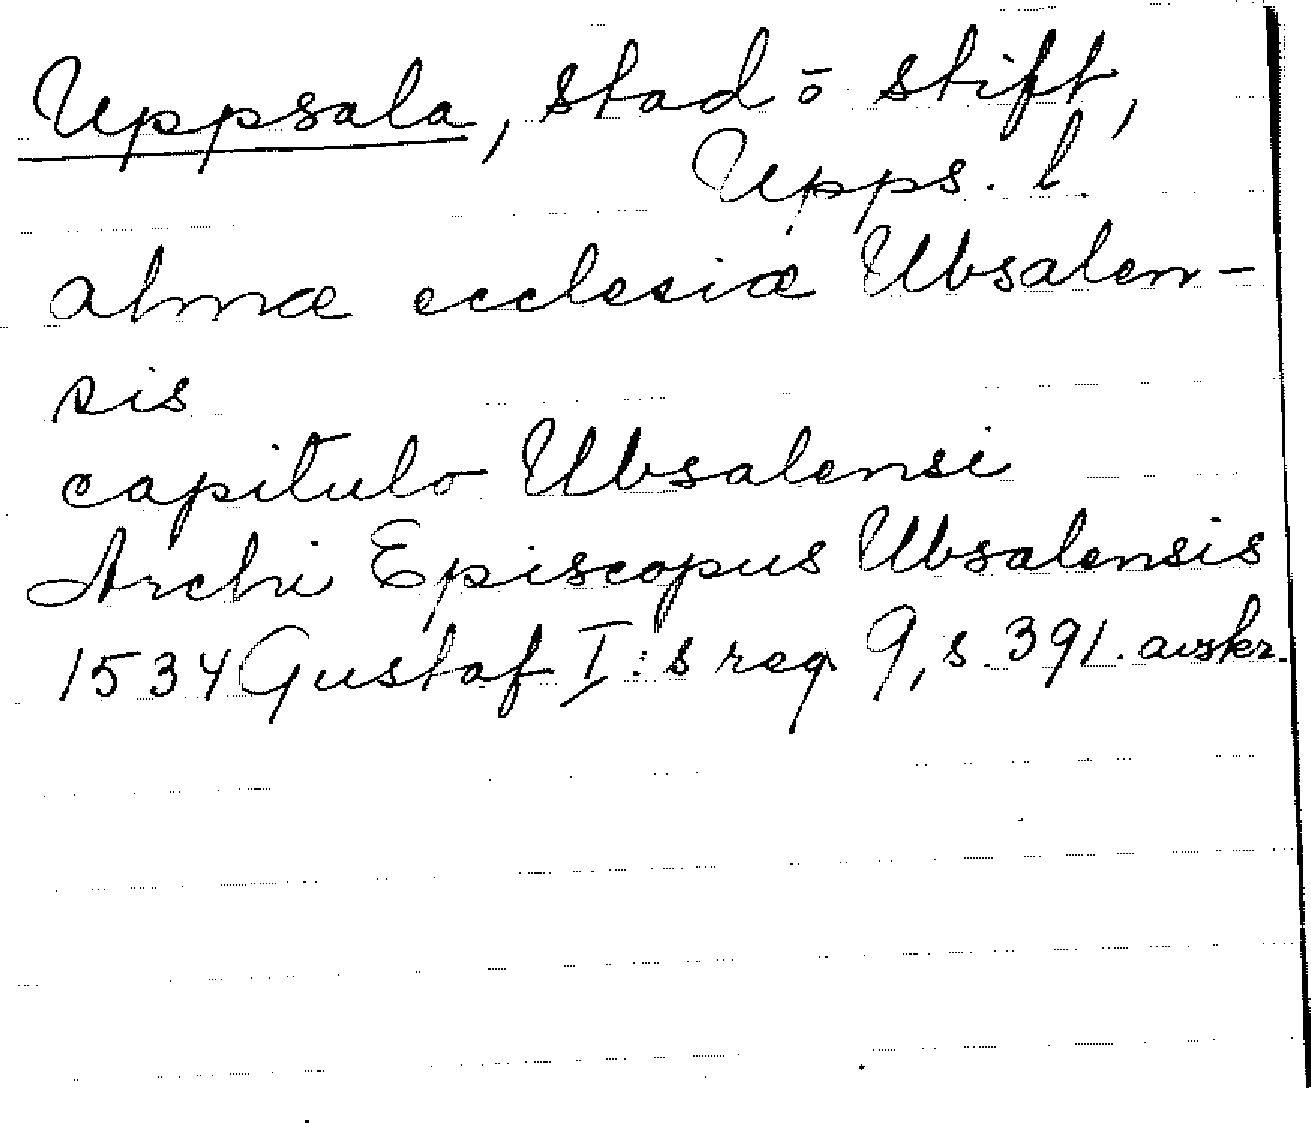 Uppsala, stad ō stift,
Upps. l.
almæ ecclesiæ Ubsalen-
sis
capitulo Ubsalensi
Archi Episcopus Ubsalensis
1534 Gustaf I:s reg 9, s. 391. avskr.